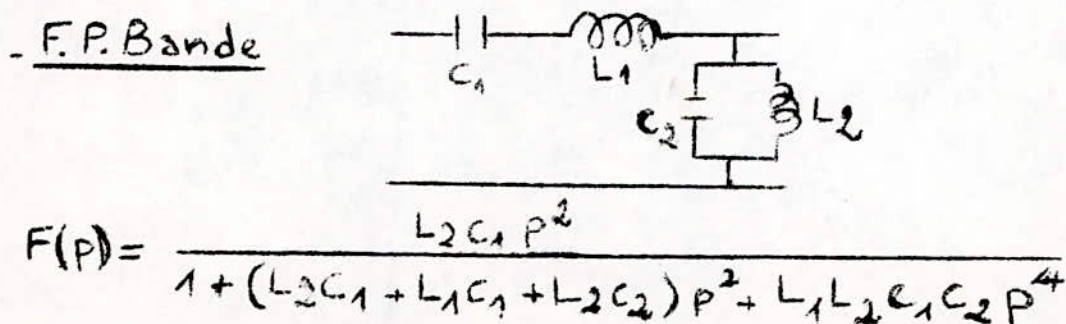 - F.P. Bande
C₁
L1
C₂
L2
F(p) = L2 C₁ p² / 1 + (L2C₁ + L₁C₁ + L2C₂) p² + L₁L₂C₁C₂p⁴